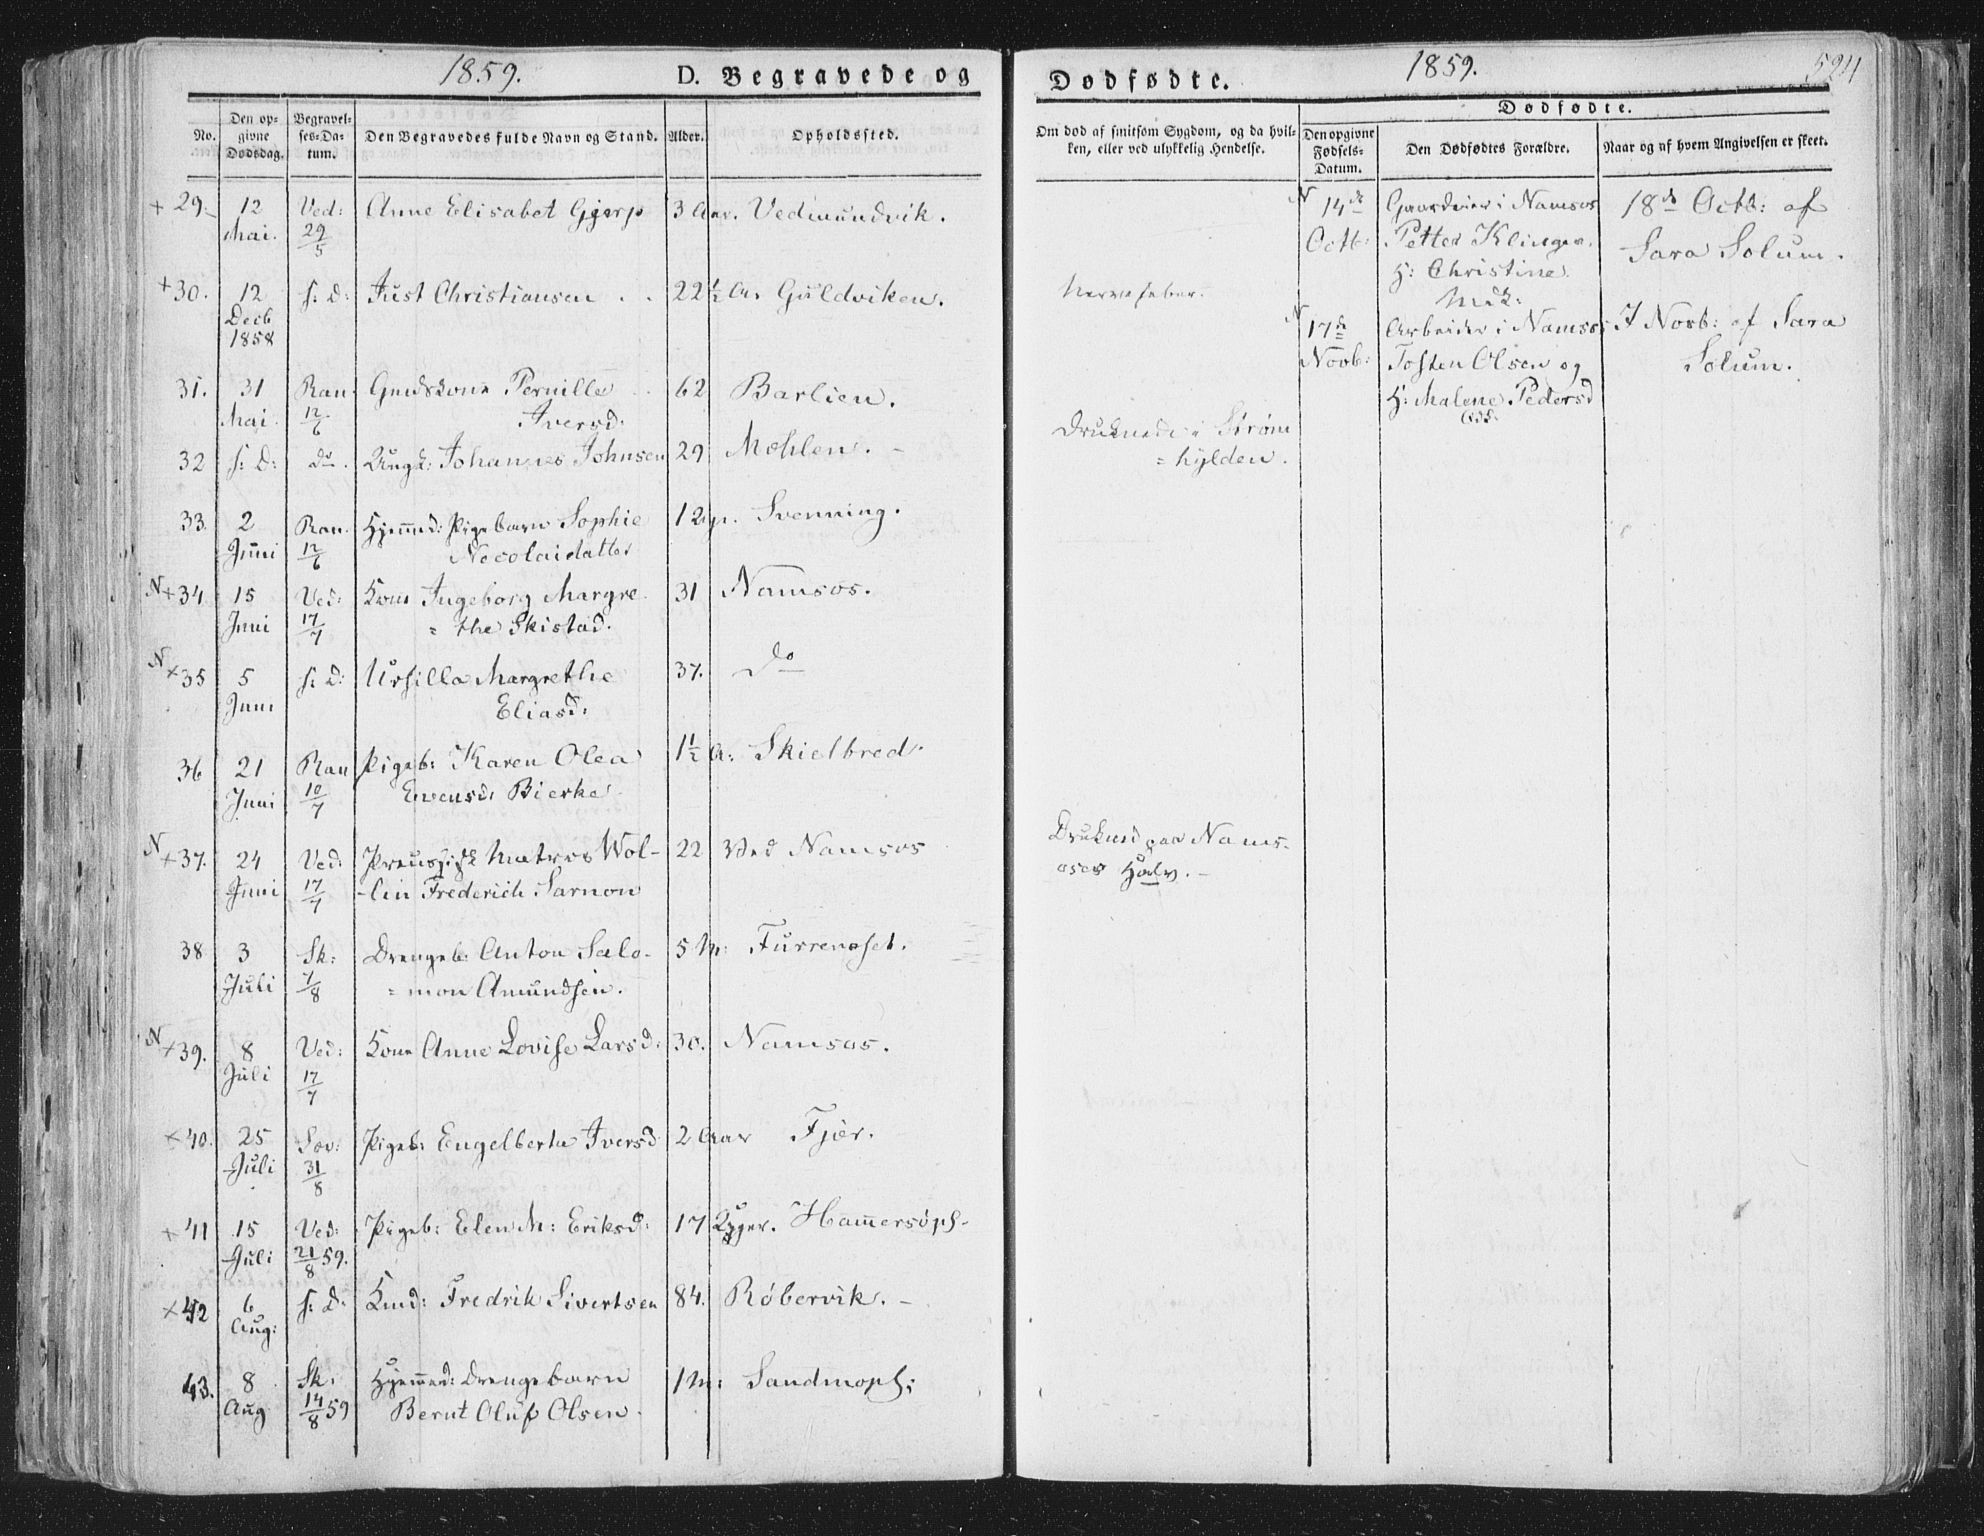 1859.
D. Begravede og
No.
Den op-
givne
Dødsdag.
Begravel-
ses-Da-
tum.
Den Begravedes fulde Navn og Stand.
Alder.
Opholdssted.
+ 29. 12 Ved: Anne Elisabet Gjerp 3 Aar. Vedmundvik.
Mai. 29/5
+30. 12 s: D: Just Christiansen . . 22 1/2 A. Guldviken.
Decb
1858
31. 31 Ran Gmdskone Pernille 62 Barlien.
Mai. 12/6 Iversd.
32 s: D: do. Ungk: Johannes Johnsen 29 Mohlen. -
33. 2 Ran. Hjemmed: Pigebarn Sophie 12 Svenning.
Juni 12/6 Necolaidatter
N +34 15 Ved: Kone Ingeborg Margre- 31 Namsos.
Juni 17/7 = the Skistad.
N +35 5 s: D: Ursilla Margrethe 37. Do
Juni Eliasd:
36 21 Ran Pigeb: Karen Olea 1 1/2 A: Skielbred.
Juni 10/7 Evensd: Bierke
N +37. 24 Ved: Preussisk Matros Wol- 22 Ved Namsos
Juni 17/7 -lin Frederich Sarnon
38 3 Sk: Drengeb: Anton Salo- 5 M: Furrenæset.
Juli 7/8 = mon Amundsen.
N +39. 8 Ved: Kone Anne Lovise Larsd: 30. Namsos.
Juli 17/7
+40. 25 Sæv: Pigeb: Engelberta Iversd 2 Aar Fjær.
Juli 31/8
+41 15 Ved: Pigeb: Elen M: Eriksd: 17 Uger. Hammersøpl-
Juli 21/8 59.
+42 6 s: D. Kmd: Fredrik Sivertsen 84. Røbervik. -
Aug:
43. 8 Sk. Hjemmed: Drengebarn 1 M: Sandmopl:
Aug 14/8 59 Bernt Oluf Olsen.
Dødfødte.
1859.
524
Om død af smitsom Sygdom, og da hvil-
ken, eller ved ulykkelig Hendelse.
Dødfødte.
Den opgivne
Fødsels-
Datum.
Den Dødfødtes Forældre.
Naar og af hvem Angivelsen er skeet.
N 14de Gaardeier i Namsos 18de Octb: af
Octb: Petter Klingen. Sara Solum.
H: Christine
Nervefeber.
N 17de Arbeider i Namsos 7 Novb: af Sara
Novb: Tosten Olsen og Solum.
H: Malene Pedersd
Druknede i Strøm
= hylden.
Drukned paa Nams-
oses Havn. -